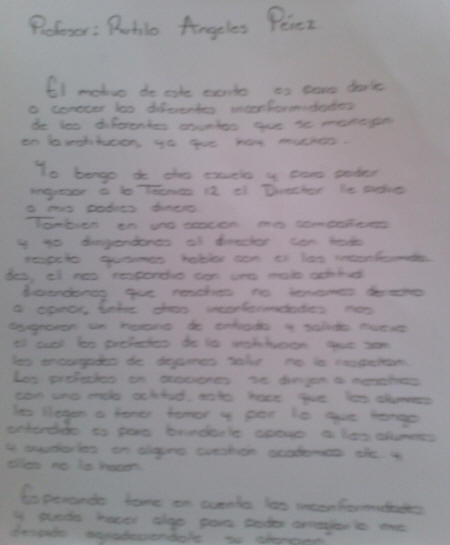 Profesor: Rutilo Angeles Pérez
El motivo de este escrito es para darle
a conocer las diferentes inconformidades
de los diferentes asuntos que se manejan
en la institucion, ya que hay muchas.
Yo bengo de otra escuela y para poder
ingresar a la Tecnica 12 el Director le pidio
a mis padres dinero.
Tambien en una ocacion mis compañeros
y yo dirijendonos al director con todo
respeto quisimos hablar con el las inconformida
des, el nos respondio con una mala actitud
diciendonos que nosotros no teniamos derecho
a opinar, Entre otras inconformidades nos
asignaron un horario de entrada y salida nuevo
el cual los prefectos de la institucion que son
los encargados de dejarnos salir no lo respetan.
Los prefectos en ocaciones se dirijen a nosotros
con una mala actitud, esto hace que los alumnos
les llegen a tener temor y por lo que tengo
entendido es para brindarle apoyo a los alumnos
y ayudarles en alguna cuestion academica etc. y
ellos no lo hacen.
Esperando tome en cuenta las inconformidades
y pueda hacer algo para poder arreglarlo me
despido agradeciendole su atencion